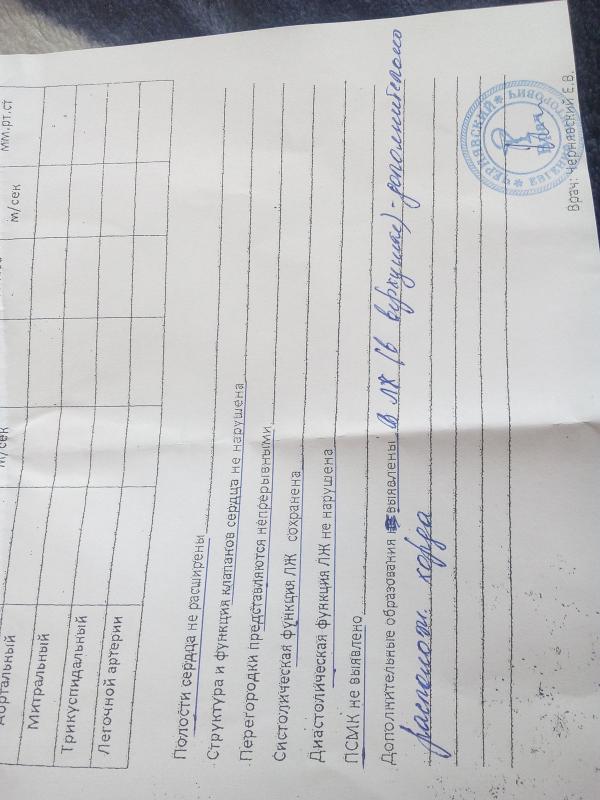 м/сек м/сек мм.рт.ст
Аортальный
Митральный
Трикуспидальный
Легочной артерии
Полости сердца не расширены
Структура и функция клапанов сердца не нарушена
Перегородки представляются непрерывными
Систолическая функция ЛЖ сохранена
Диастолическая функция ЛЖ не нарушена
ПСМК не выявлено
Дополнительные образования выявлены В ЛЖ (в верхушке) - дополнительно
располож. хорда
ЧЕРНЯВСКИЙ ЕВГЕНИЙ
Врач
Врач: Чернявский Е.В.